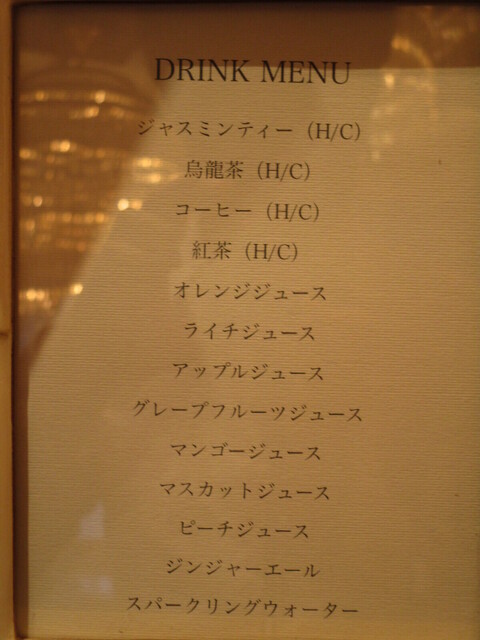 DRINK MENU
ジャスミンティー（H/C）
烏龍茶（H/C）
コーヒー（H/C）
紅茶（H/C）
オレンジジュース
ライチジュース
アップルジュース
グレープフルーツジュース
マンゴージュース
マスカットジュース
ピーチジュース
ジンジャーエール
スパークリングウォーター